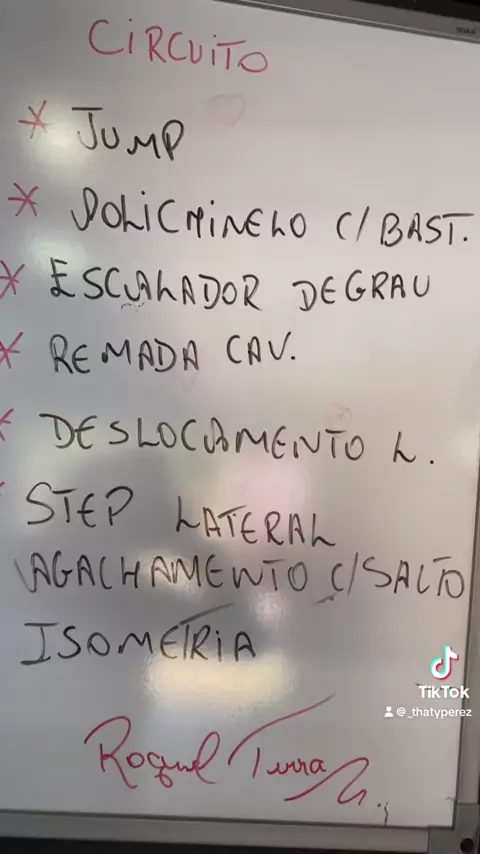 CIRCUITO
* JUMP
* POLICHINELO C/ BAST.
* ESCALADOR DEGRAU
* REMADA CAV.
* DESLOCAMENTO L.
STEP LATERAL
AGACHAMENTO C/SALTO
ISOMETRIA
TikTok
@_thatyperez
Raquel Terra